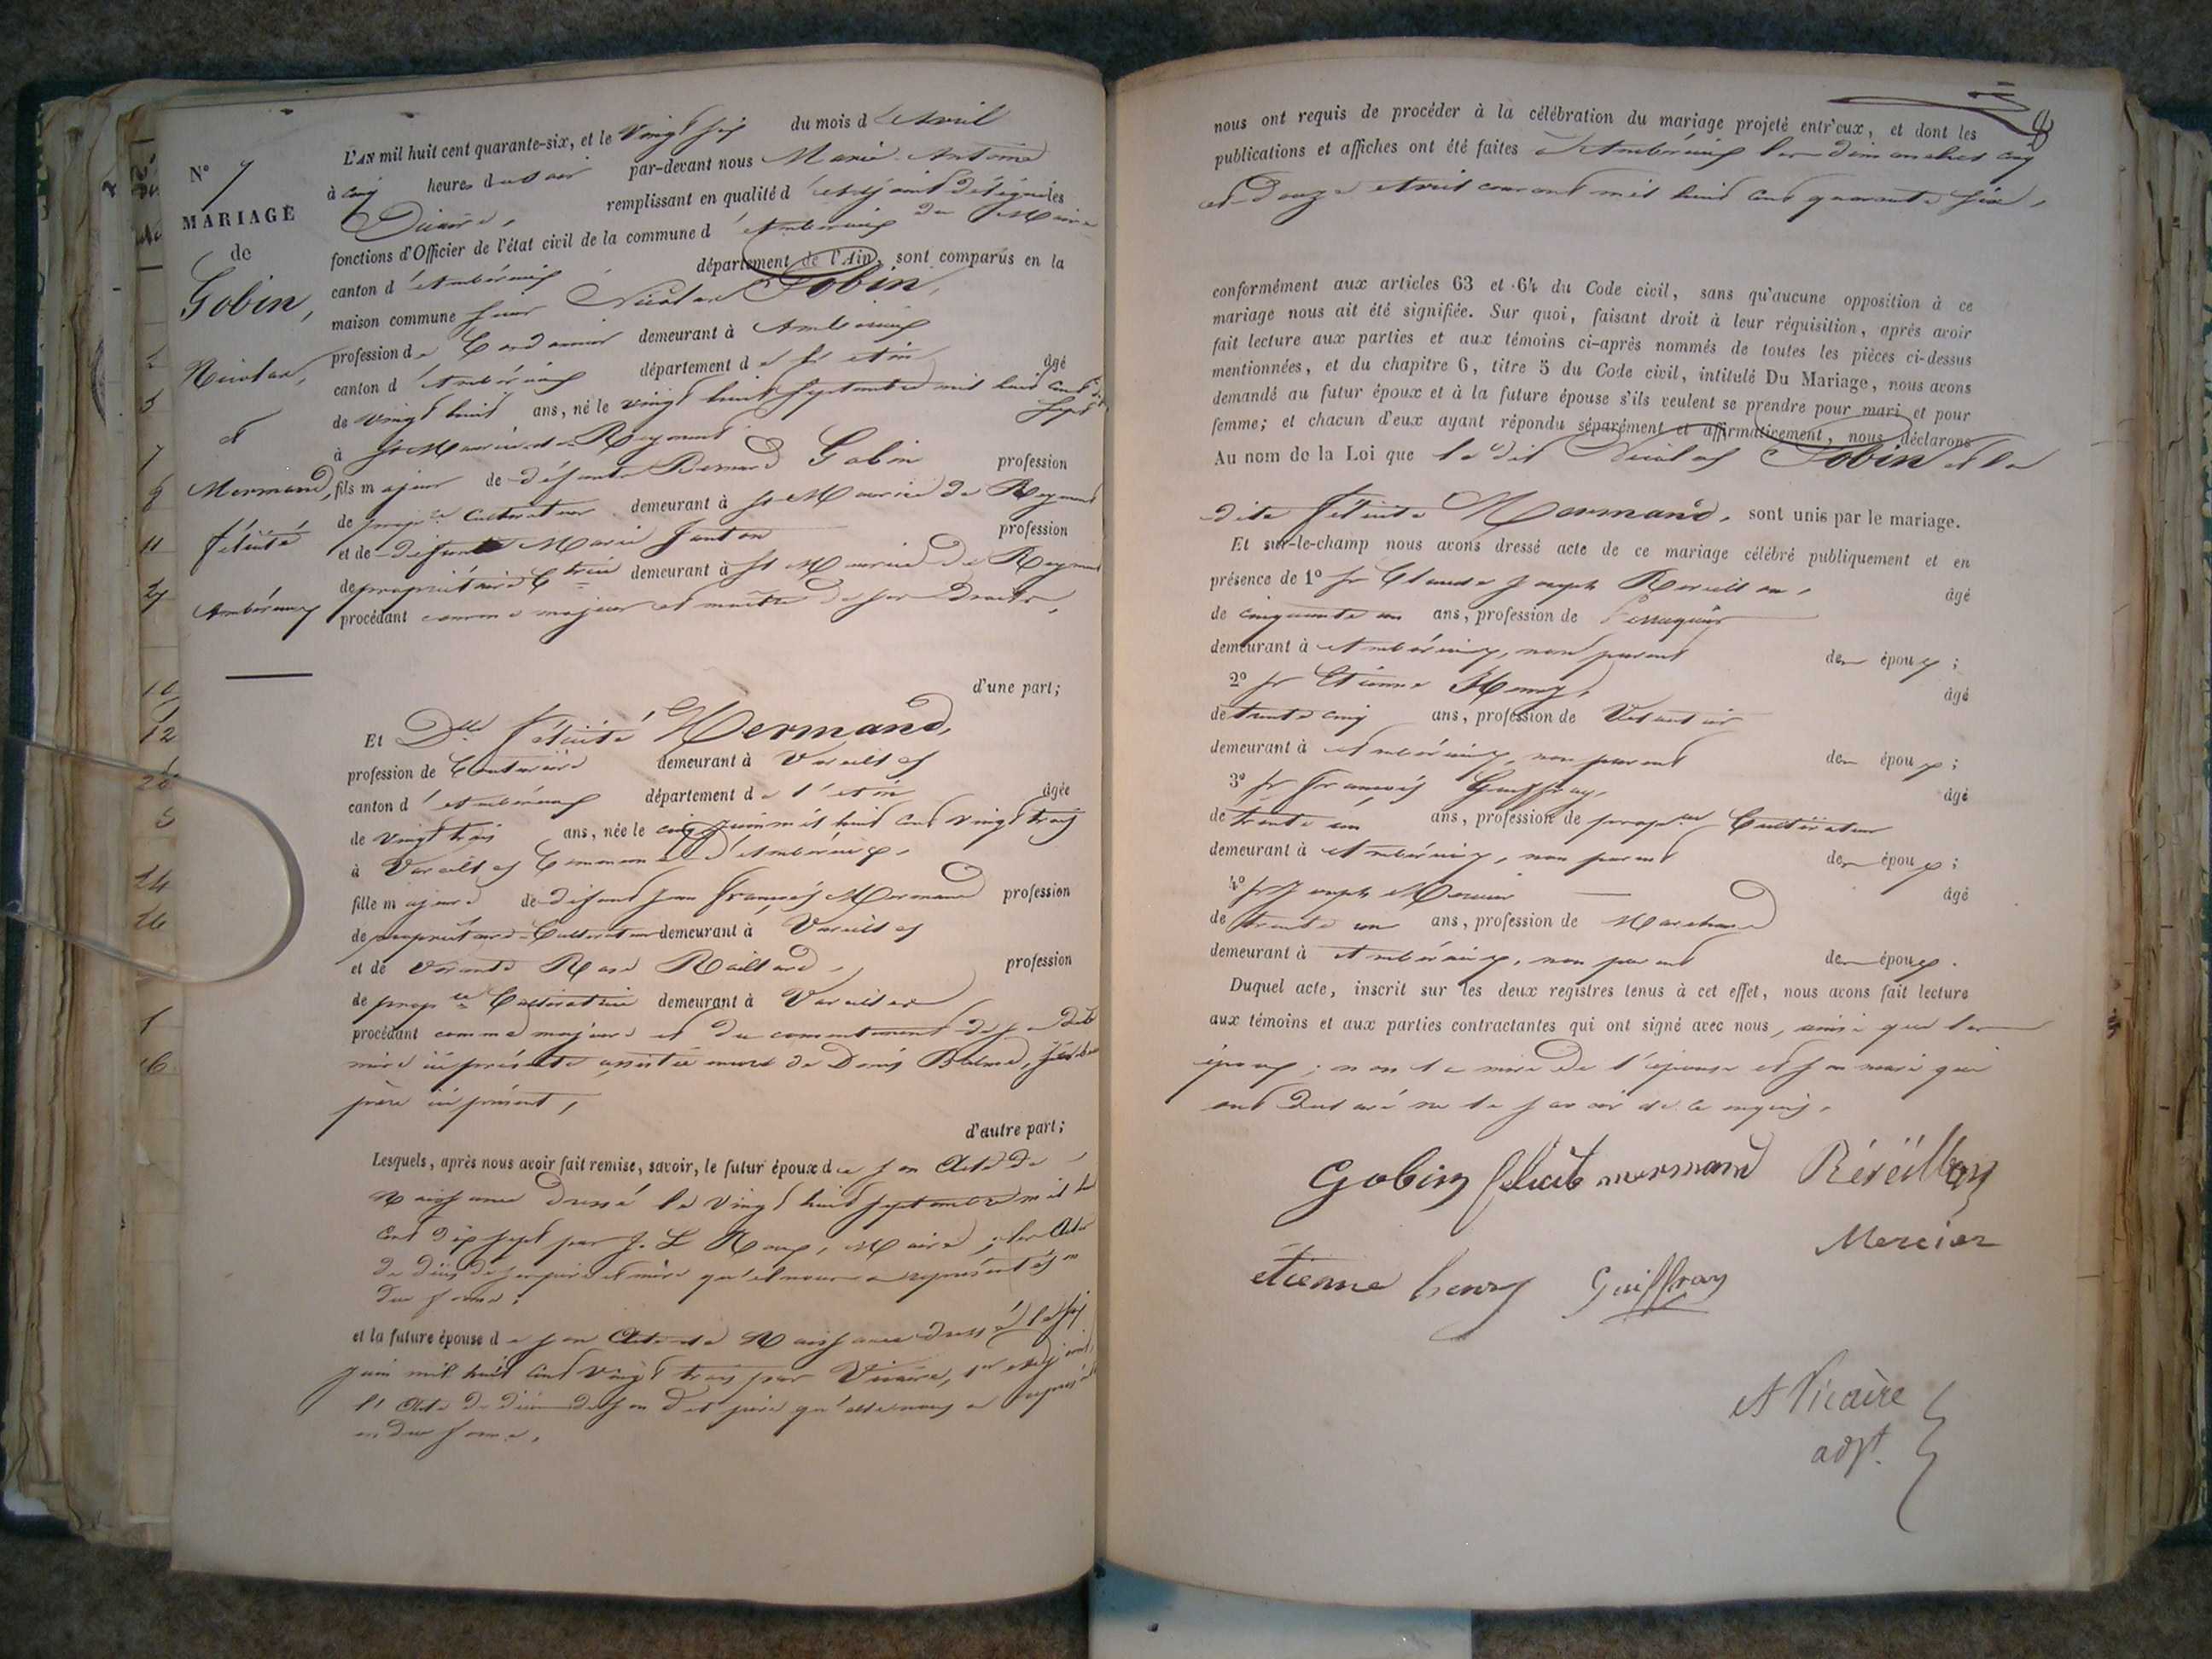 N° 7
MARIAGE
de
Gobin,
Nicolas,
et
Mermand,
félicité
Ambérieux
L'AN mil huit cent quarante-six, et le Vingt six du mois d'Avril
à cinq heures du soir par-devant nous Marie Antoine
Vicaire, remplissant en qualité d'Adjoint délégué les
du Maire
fonctions d'Officier de l'état civil de la commune d'Ambérieux
canton d'Ambérieux département de l'Ain, sont comparus en la
maison commune sieur Nicolas Gobin,
profession de Cordonnier demeurant à Ambérieux
canton d'Ambérieux département de l'Ain âgé
de vingt huit ans, né le vingt huit septembre mil huit cent dix
sept
à St Maurice de
fils majeur de défunts Bernard Gobin profession
de propre Cultivateur demeurant à St Maurice de
et de défunte Marie profession
de propriétaire Ctrice demeurant à St Maurice de
procédant comme majeur et maître de ses droits,
d'une part;
Et Dlle félicité Mermand,
profession de Couturière demeurant à Vareilles
canton d'Ambérieux département de l'Ain âgée
de vingt trois ans, née le cinq juin mil huit cent vingt trois
à Vareilles Commune d'Ambérieux,
fille majeure de défunt Jean françois Mermand profession
de propriétaire-Cultivateur demeurant à Vareilles
et de vivante Rose profession
de propre Cultivatrice demeurant à Vareilles
procédant comme majeure et du consentement de sa dite
mère ici présente assistée encore de Denis
père ici présent,
d'autre part;
Lesquels, après nous avoir fait remise, savoir, le futur époux de son Acte de
Naissance dressé le vingt huit septembre mil huit
cent dix sept par J. L Roux, Maire; les Actes
de décès de ses père et mère qu'il nous a représentés en
due forme;
et la future épouse de son Acte de Naissance dressé le six
juin mil huit cent vingt trois par Vicaire, 1er Adjoint,
l'Acte de décès de son dit père qu'elle nous a représenté
en due forme,
nous ont requis de procéder à la célébration du mariage projeté entr'eux, et dont les
publications et affiches ont été faites à Ambérieux les dimanches cinq
et Douze Avril courant mil huit cent quarante six,
conformément aux articles 63 et 64 du Code civil, sans qu'aucune opposition à ce
mariage nous ait été signifiée. Sur quoi, faisant droit à leur réquisition, après avoir
fait lecture aux parties et aux témoins ci-après nommés de toutes les pièces ci-dessus
mentionnées, et du chapitre 6, titre 5 du Code civil, intitulé Du Mariage, nous avons
demandé au futur époux et à la future épouse s'ils veulent se prendre pour mari et pour
femme; et chacun d'eux ayant répondu séparément et affirmativement, nous déclarons
Au nom de la Loi que le dit Nicolas Gobin et la
dite félicité Mermand, sont unis par le mariage.
Et sur-le-champ nous avons dressé acte de ce mariage célébré publiquement et en
présence de 1° sr Claude Joseph âgé
de cinquante un ans, profession de Perruquier
demeurant à Ambérieux, non parent des époux;
2° sr Etienne Henry, âgé
de trente cinq ans, profession de
demeurant à Ambérieux, non parent des époux;
3° sr françois Guiffray, âgé
de trente un ans, profession de propre Cultivateur
demeurant à Ambérieux, non parent des époux;
4° sr Joseph Mercier âgé
de trente un ans, profession de Marchand
demeurant à Ambérieux, non parent des époux.
Duquel acte, inscrit sur les deux registres tenus à cet effet, nous avons fait lecture
aux témoins et aux parties contractantes qui ont signé avec nous, ainsi que les
époux; non la mère de l'épouse et son mari qui
ont déclaré ne le savoir de ce enquis,
Gobin félicité mermand Réveillon
Mercier
étienne henry Guiffray
A Vicaire
adjt.